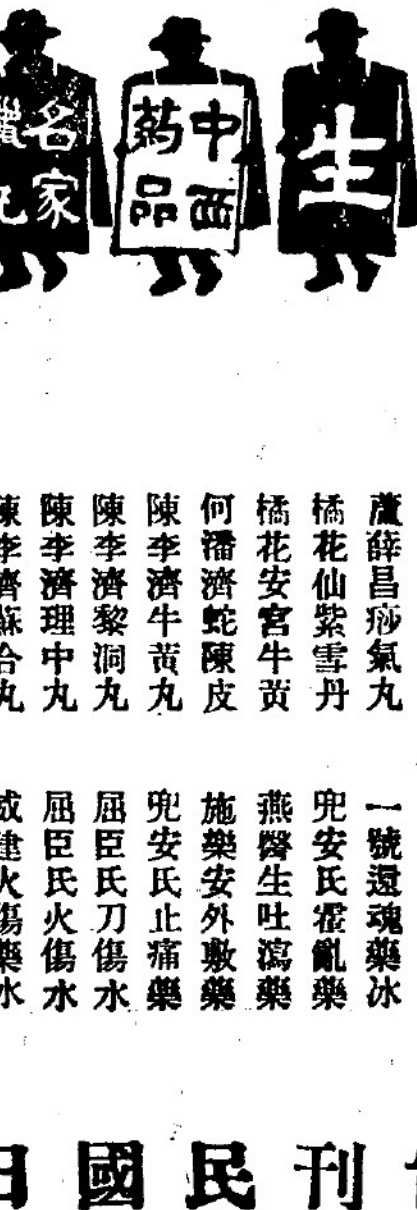 生
中西
药品
名家
蘆薛昌痧氣丸
橘花仙紫雪丹
橘花安宮牛黄
何潘濟蛇陳皮
陳李濟牛黄丸
陳李濟黎洞丸
陳李濟理中丸
陳李濟蘇合丸
一號還魂藥冰
兜安氏霍亂藥
燕醫生吐瀉藥
施樂安外敷藥
兜安氏止痛藥
屈臣氏刀傷水
屈臣氏火傷水
威建火傷藥水
刊
民
國
日